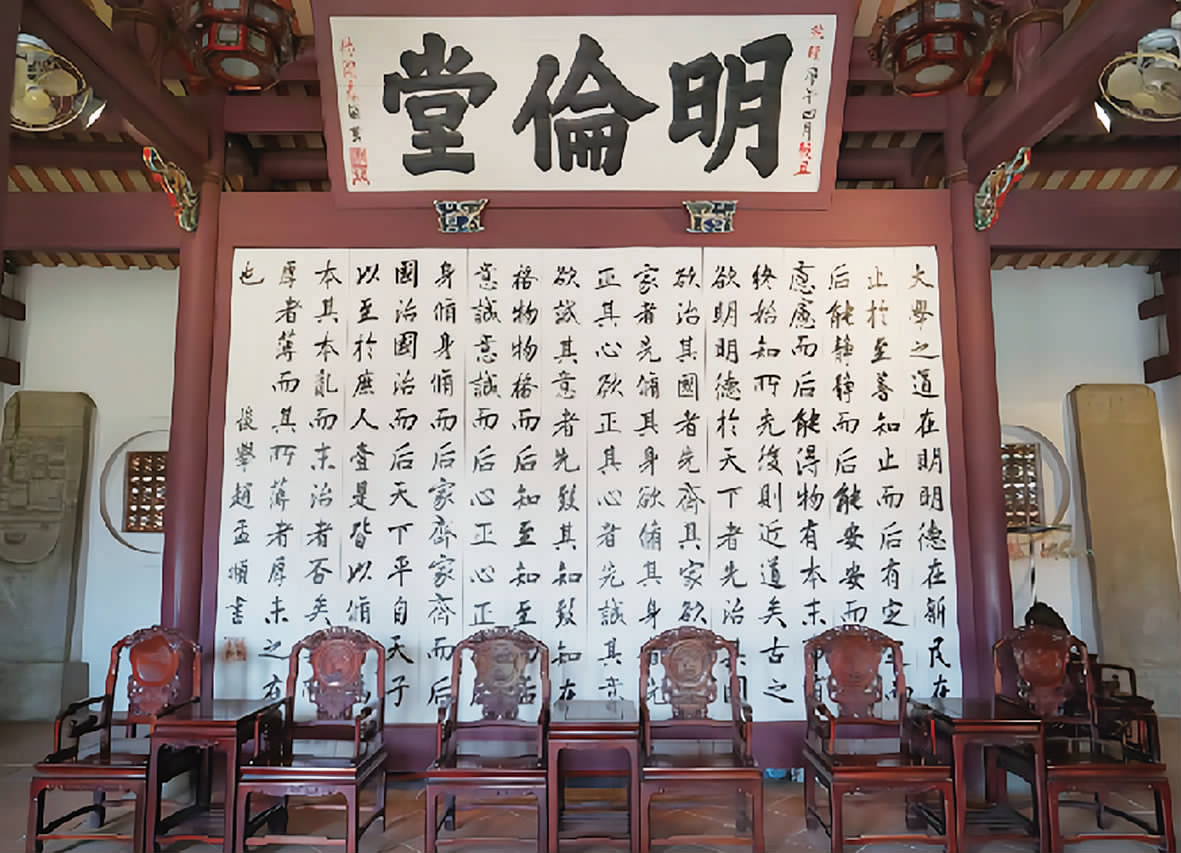 明倫堂
乾隆庚午四月穀旦
大學之道在明明德在新民在
止於至善知止而后有定而
后能靜靜而后能安安而
慮慮而后能得物有本末有
終始知所先後則近道矣古之
欲明明德於天下者先治其國
欲治其國者先齊其家欲
家者先脩其身欲脩其身者先
正其心欲正其心者先誠其意
欲誠其意者先致其知致知在
格物物格而后知至知至后
意誠意誠而后心正心正后
身脩身脩而后家齊家齊而后
國治國治而后天下平自天子
以至於庶人壹是皆以脩
本其本亂而末治者否矣
厚者薄而其所薄者厚未之有
也
後學趙孟頫書